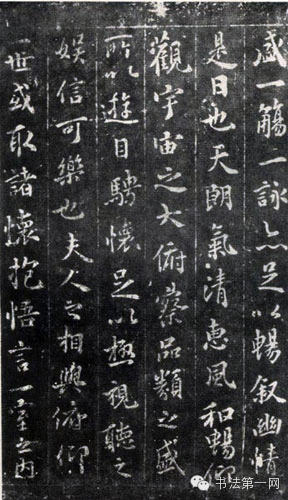 盛一觴一詠亦足以暢叙幽情
是日也天朗氣清惠風和暢仰
觀宇宙之大俯察品類之盛
所以遊目騁懷足以極視聽之
娛信可樂也夫人之相與俯仰
一世或取諸懷抱悟言一室之內
书法第一网